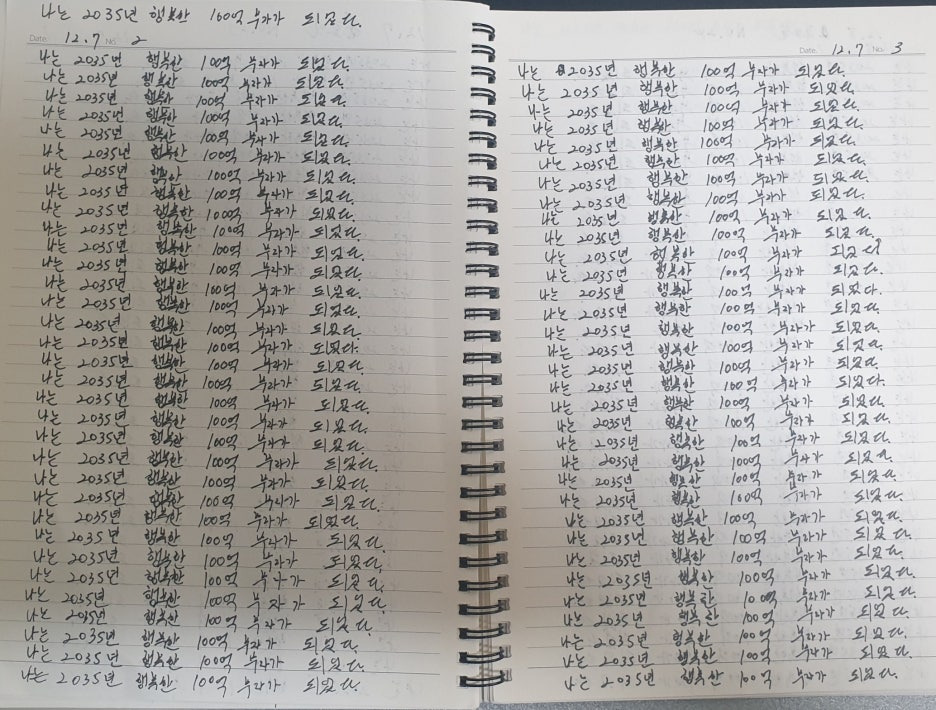 나는 2035년 행복한 100억 부자가 되었다.
Date. 12.7 No. 2
나는 2035년 행복한 100억 부자가 되었다.
나는 2035년 행복한 100억 부자가 되었다.
나는 2035년 행복한 100억 부자가 되었다.
나는 2035년 행복한 100억 부자가 되었다.
나는 2035년 행복한 100억 부자가 되었다.
나는 2035년 행복한 100억 부자가 되었다.
나는 2035년 행복한 100억 부자가 되었다.
나는 2035년 행복한 100억 부자가 되었다.
나는 2035년 행복한 100억 부자가 되었다.
나는 2035년 행복한 100억 부자가 되었다.
나는 2035년 행복한 100억 부자가 되었다.
나는 2035년 행복한 100억 부자가 되었다.
나는 2035년 행복한 100억 부자가 되었다.
나는 2035년 행복한 100억 부자가 되었다.
나는 2035년 행복한 100억 부자가 되었다.
나는 2035년 행복한 100억 부자가 되었다.
나는 2035년 행복한 100억 부자가 되었다.
나는 2035년 행복한 100억 부자가 되었다.
나는 2035년 행복한 100억 부자가 되었다.
나는 2035년 행복한 100억 부자가 되었다.
나는 2035년 행복한 100억 부자가 되었다.
나는 2035년 행복한 100억 부자가 되었다.
나는 2035년 행복한 100억 부자가 되었다.
나는 2035년 행복한 100억 부자가 되었다.
나는 2035년 행복한 100억 부자가 되었다.
나는 2035년 행복한 100억 부자가 되었다.
나는 2035년 행복한 100억 부자가 되었다.
나는 2035년 행복한 100억 부자가 되었다.
나는 2035년 행복한 100억 부자가 되었다.
나는 2035년 행복한 100억 부자가 되었다.
나는 2035년 행복한 100억 부자가 되었다.
나는 2035년 행복한 100억 부자가 되었다.
나는 2035년 행복한 100억 부자가 되었다.
Date. 12.7 No. 3
나는 2035년 행복한 100억 부자가 되었다.
나는 2035년 행복한 100억 부자가 되었다.
나는 2035년 행복한 100억 부자가 되었다.
나는 2035년 행복한 100억 부자가 되었다.
나는 2035년 행복한 100억 부자가 되었다.
나는 2035년 행복한 100억 부자가 되었다.
나는 2035년 행복한 100억 부자가 되었다.
나는 2035년 행복한 100억 부자가 되었다.
나는 2035년 행복한 100억 부자가 되었다.
나는 2035년 행복한 100억 부자가 되었다.
나는 2035년 행복한 100억 부자가 되었다.
나는 2035년 행복한 100억 부자가 되었다.
나는 2035년 행복한 100억 부자가 되었다.
나는 2035년 행복한 100억 부자가 되었다.
나는 2035년 행복한 100억 부자가 되었다.
나는 2035년 행복한 100억 부자가 되었다.
나는 2035년 행복한 100억 부자가 되었다.
나는 2035년 행복한 100억 부자가 되었다.
나는 2035년 행복한 100억 부자가 되었다.
나는 2035년 행복한 100억 부자가 되었다.
나는 2035년 행복한 100억 부자가 되었다.
나는 2035년 행복한 100억 부자가 되었다.
나는 2035년 행복한 100억 부자가 되었다.
나는 2035년 행복한 100억 부자가 되었다.
나는 2035년 행복한 100억 부자가 되었다.
나는 2035년 행복한 100억 부자가 되었다.
나는 2035년 행복한 100억 부자가 되었다.
나는 2035년 행복한 100억 부자가 되었다.
나는 2035년 행복한 100억 부자가 되었다.
나는 2035년 행복한 100억 부자가 되었다.
나는 2035년 행복한 100억 부자가 되었다.
나는 2035년 행복한 100억 부자가 되었다.
나는 2035년 행복한 100억 부자가 되었다.